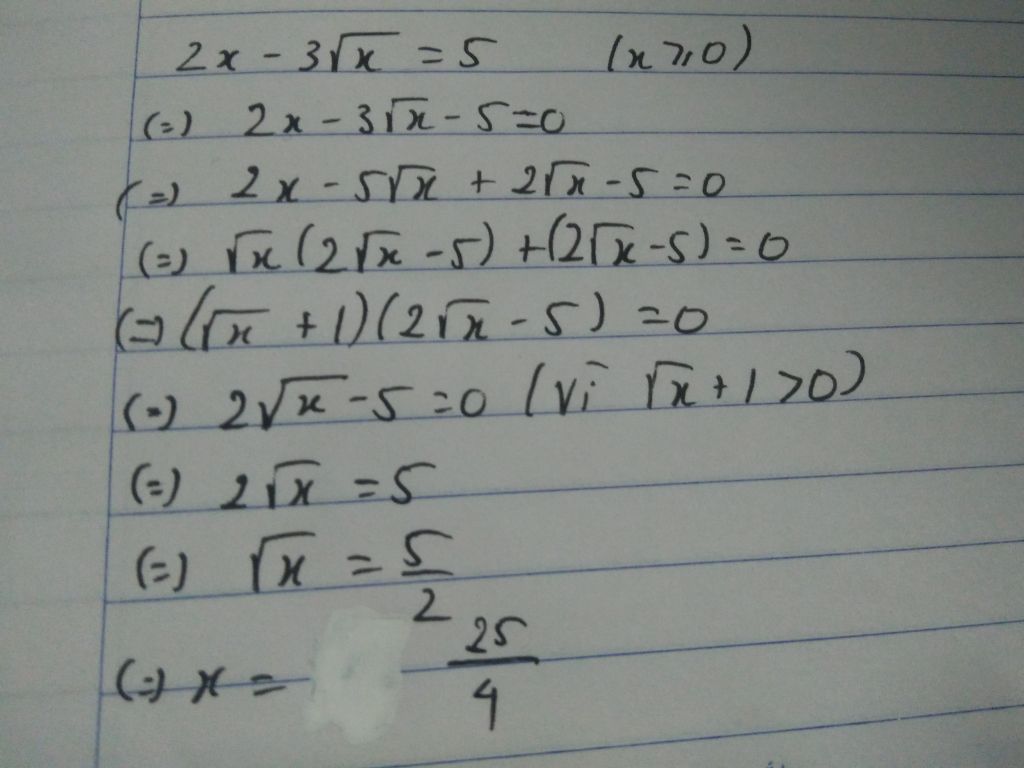 2x - 3√x = 5 (x ⩾ 0)
(=) 2x - 3√x - 5 = 0
(=) 2x - 5√x + 2√x - 5 = 0
(=) √x (2√x - 5) + (2√x - 5) = 0
(=) (√x + 1)(2√x - 5) = 0
(=) 2√x - 5 = 0 (Vì √x + 1 > 0)
(=) 2√x = 5
(=) √x = 5/2
(=) x = 25/4